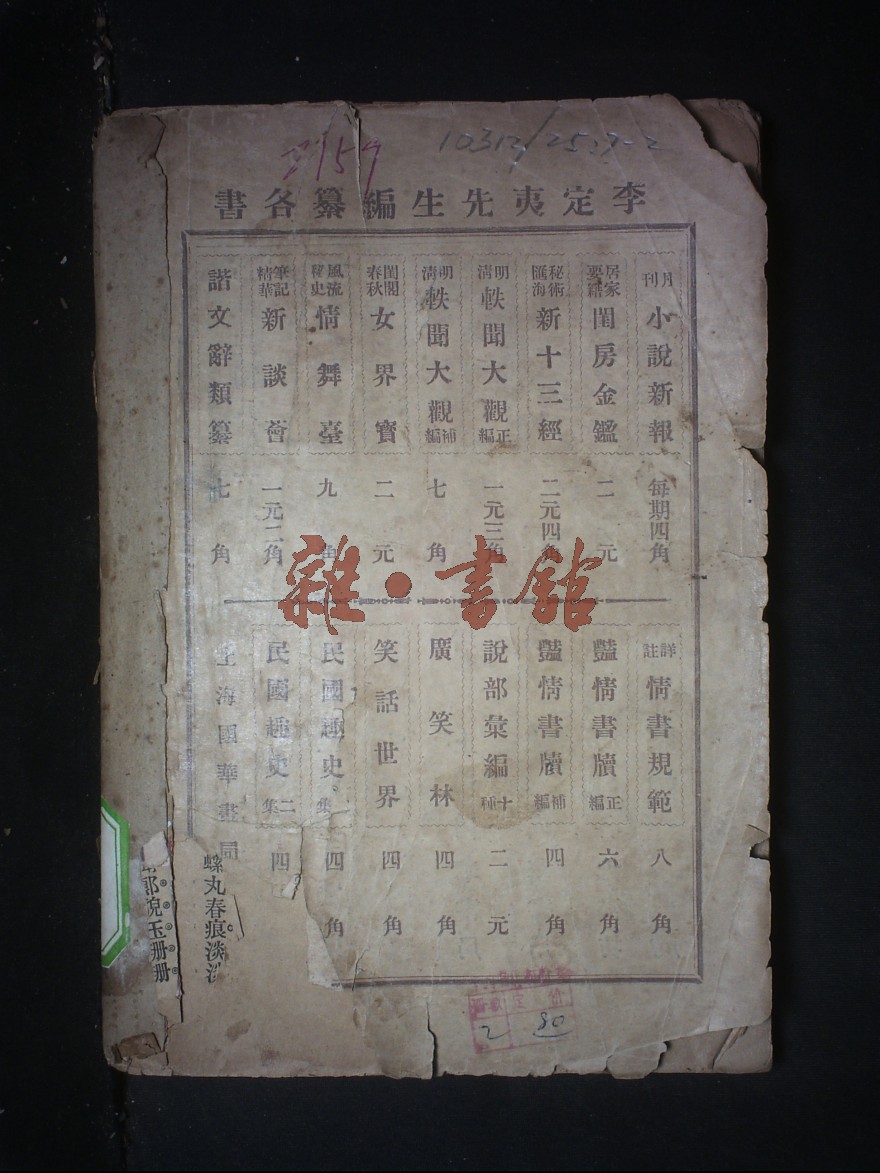 10313/2537-2
李定夷先生編纂各書
月刊 小說新報 每期四角
居家要籍 閨房金鑑 二元
秘術匯海 新十三經 二元四角
明清 軼聞大觀 正編 一元三角
明清 軼聞大觀 補編 七角
閨閣春秋 女界寶 二元
風流穢史 情舞臺 九角
筆記精華 新談薈 一元二角
諧文辭類纂 七角
詳註 情書規範 八角
豔情書牘 正編 六角
豔情書牘 補編 四角
說部彙編 十種 二元
廣笑林 四角
笑話世界 四角
民國趣史 集 四角
民國趣史 二集 四
上海國華書局
螺丸春痕。淡
郎貌玉珊珊
雜·書館
定价
2 80